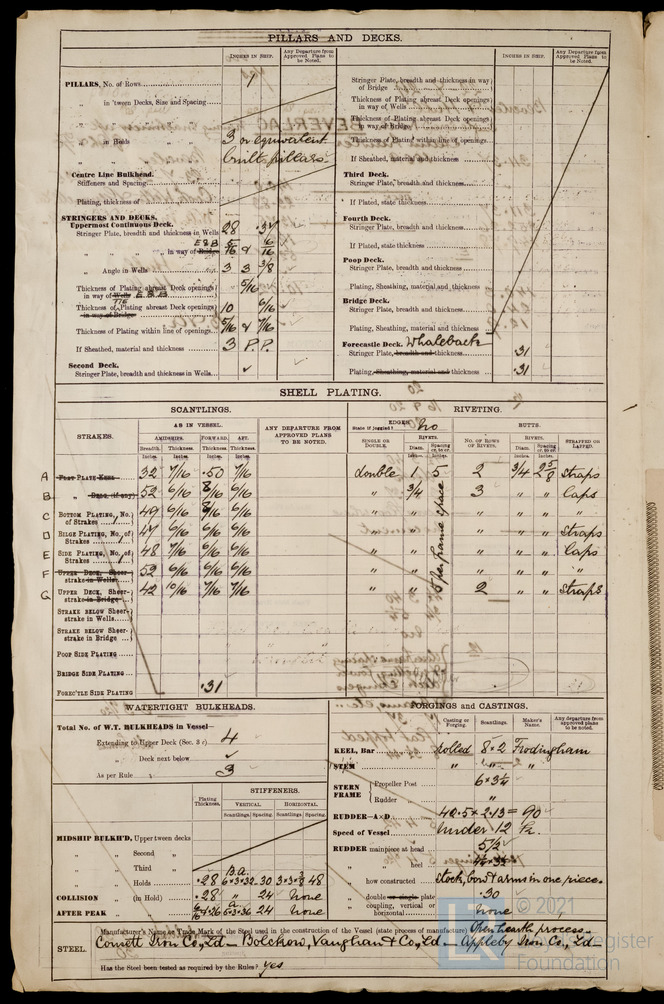 PILLARS AND DECKS.
INCHES IN SHIP.
Any Departure from Approved Plans to be Noted.
PILLARS, No. of Rows
1
„ in 'tween Decks, Size and Spacing
„ in Holds
3 or equivalent
built pillars.
Centre Line Bulkhead.
Stiffeners and Spacing
Plating, thickness of
STRINGERS AND DECKS.
Uppermost Continuous Deck.
Stringer Plate, breadth and thickness in Wells 28 .34
„ „ in way of Bridge E & B
„ Angle in Wells 3 3 3/8
Thickness of Plating abreast Deck openings in way of Wells E & B 5/16
Thickness of Plating abreast Deck openings in way of Bridge 10 6/16
Thickness of Plating within line of openings 5/16 & 7/16
If Sheathed, material and thickness 3 P.P.
Second Deck.
Stringer Plate, breadth and thickness in Wells
INCHES IN SHIP.
Any Departure from Approved Plans to be Noted.
Stringer Plate, breadth and thickness in way of Bridge
Thickness of Plating abreast Deck openings in way of Wells
Thickness of Plating abreast Deck openings in way of Bridge
Thickness of Plating within line of openings
If Sheathed, material and thickness
Third Deck.
Stringer Plate, breadth and thickness
If Plated, state thickness
Fourth Deck.
Stringer Plate, breadth and thickness
If Plated, state thickness
Poop Deck.
Stringer Plate, breadth and thickness
Plating, Sheathing, material and thickness
Bridge Deck.
Stringer Plate, breadth and thickness
Plating, Sheathing, material and thickness
Forecastle Deck. Whaleback
Stringer Plate, breadth and thickness .31
Plating, Sheathing, material and thickness .31
SHELL PLATING.
SCANTLINGS.
RIVETING.
STRAKES.
AS IN VESSEL.
AMIDSHIPS. FORWARD. AFT.
Breadth. Thickness. Thickness. Thickness.
Inches. Inches. Inches. Inches.
ANY DEPARTURE FROM APPROVED PLANS TO BE NOTED.
EDGES
State if joggled? No
BUTTS.
SINGLE OR DOUBLE.
RIVETS.
Diam. Spacing cr. to cr.
No. OF ROWS OF RIVETS.
RIVETS.
Diam. Spacing cr. to cr.
STRAPPED OR LAPPED.
A FLAT PLATE KEEL 32 7/16 .50 7/16 double 1 5 2 3/4 2 5/8 Straps
B „ DBNG. (if any) 52 6/16 8/16 6/16 „ 3/4 3 „ „ Laps
C BOTTOM PLATING, No. of Strakes 49 6/16 8/16 6/16 „ „ „ „ „ „
D BILGE PLATING, No. of Strakes 47 6/16 6/16 6/16 „ „ „ „ „ Straps
E SIDE PLATING, No. of Strakes 48 7/16 6/16 6/16 „ „ „ „ „ Laps
F UPPER DECK, Sheer-strake in Wells 52 6/16 6/16 6/16 „ „ „ „ „ „
G UPPER DECK, Sheer-strake in Bridge 42 10/16 7/16 7/16 „ „ 2 „ „ Straps
5 per frame space
STRAKE BELOW Sheer-strake in Wells
STRAKE BELOW Sheer-strake in Bridge
POOP SIDE PLATING
BRIDGE SIDE PLATING
FORECTLE SIDE PLATING .31
WATERTIGHT BULKHEADS.
Total No. of W.T. BULKHEADS in Vessel—
Extending to Upper Deck (Sec. 3 c) 4
„ Deck next below
As per Rule 3
Plating Thickness.
STIFFENERS.
VERTICAL
HORIZONTAL
Scantlings. Spacing Scantlings. Spacing
MIDSHIP BULKH'D, Upper tween decks
„ „ Second „
„ „ Third „
B.a.
„ „ Holds .28 6 × 3 × .32 30 3 × 3 × 48
COLLISION (in Hold) .28 „ 24 None
AFTER PEAK „ .26 5 × 3 × .36 24 None
FORGINGS and CASTINGS.
Casting or Forging.
Scantlings.
Maker's Name.
Any departure from approved plans to be noted.
KEEL, Bar rolled 8 × 2 Frodingham
STEM „ „ „
STERN FRAME
Propeller Post 6 × 3 1/4
Rudder „ „
RUDDER—A×D 40.5 × 2.13 = 90
Speed of Vessel Under 12 K.
RUDDER mainpiece at head 5 1/2
„ „ heel
„ how constructed stock, bow & arms in one piece.
„ double or single plate .30
„ coupling, vertical or horizontal None
STEEL.
Manufacturer's Name or Trade Mark of the Steel used in the construction of the vessel (state process of manufacture) Open hearth process—
Consett Iron Co, Ld — Bolckow, Vaughan & Co, Ld — Appleby Iron Co, Ld
Has the Steel been tested as required by the Rules? Yes
© 2021
Lloyd's Register
Foundation